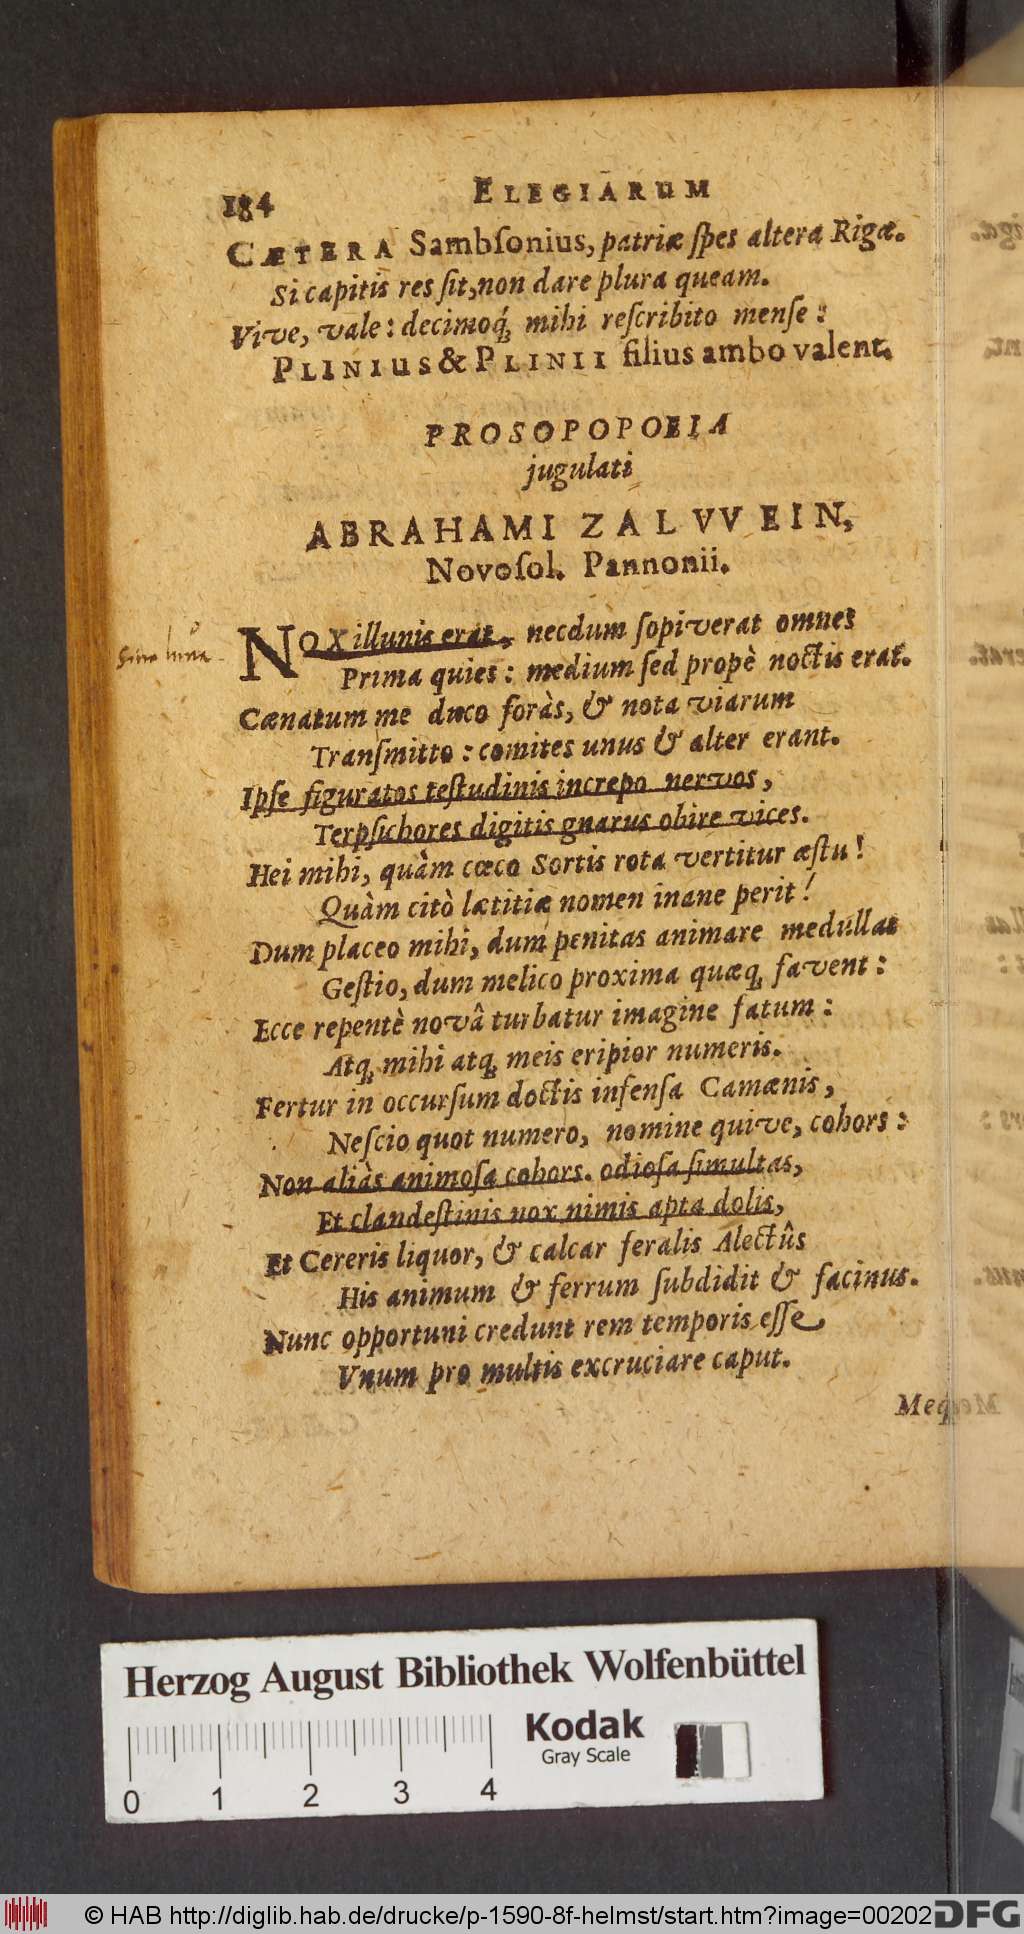 184 ELEGIARUM
CÆTERA Sambſonius, patriæ ſpes altera Rigæ.
Si capitis res ſit, non dare plura queam.
Vive, vale: decimoq́ꝫ mihi reſcribito menſe:
PLINIUS & PLINII filius ambo valent.
PROSOPOPOEIA
jugulati
ABRAHAMI ZALVVEIN,
Novoſol. Pannonii.
NOX illunis erat, necdum ſopiverat omnes
sine luna
Prima quies: medium ſed propè noctis erat.
Cænatum me duco foràs, & nota viarum
Tranſmitto: comites unus & alter erant.
Ipſe figuratos teſtudinis increpo nervos,
Terpſichores digitis gnarus obire vices.
Hei mihi, quàm cœco Sortis rota vertitur æſtu!
Quàm citò lætitiæ nomen inane perit!
Dum placeo mihi, dum penitas animare medullas
Geſtio, dum melico proxima quæqꝫ favent:
Ecce repentè novâ turbatur imagine fatum:
Atqꝫ mihi atqꝫ meis eripior numeris.
Fertur in occurſum doctis infenſa Camænis,
Neſcio quot numero, nomine quive, cohors:
Non aliàs animoſa cohors. odioſa ſimultas,
Et clandeſtinis nox nimis apta dolis,
Et Cereris liquor, & calcar feralis Alectûs
His animum & ferrum ſubdidit & facinus.
Nunc opportuni credunt rem temporis eſſe
Vnum pro multis excruciare caput.
Meqꝫ
Herzog August Bibliothek Wolfenbüttel
Kodak
Gray Scale
0 1 2 3 4
© HAB http://diglib.hab.de/drucke/p-1590-8f-helmst/start.htm?image=00202
DFG